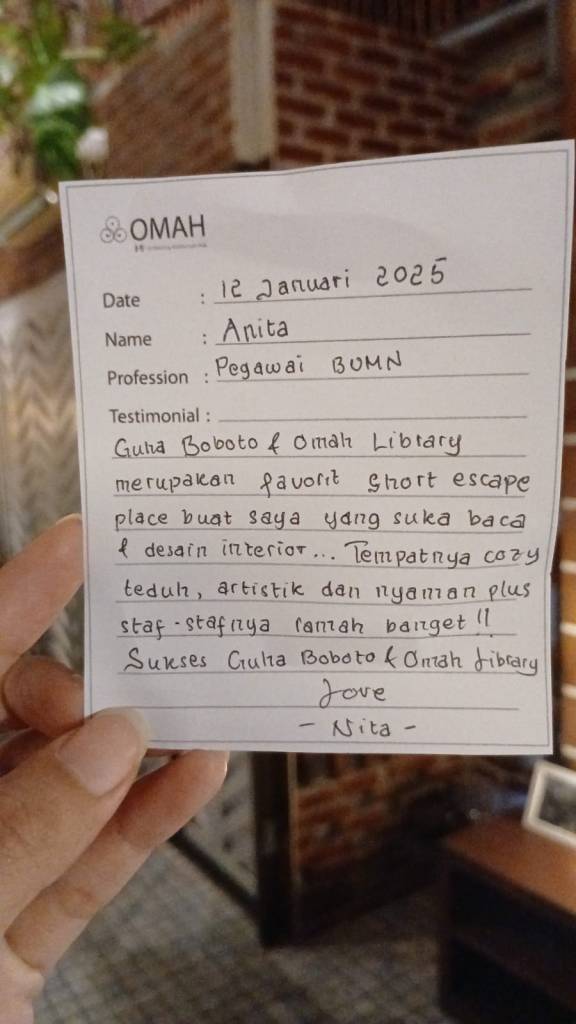 OMAH
Date : 12 Januari 2025
Name : Anita
Profession : Pegawai BUMN
Testimonial :
Guha Boboto & Omah Library
merupakan favorit short escape
place buat saya yang suka baca
& desain interior... Tempatnya cozy
teduh, artistik dan nyaman plus
staf-stafnya ramah banget!!
Sukses Guha Boboto & Omah Library
Love
- Nita -